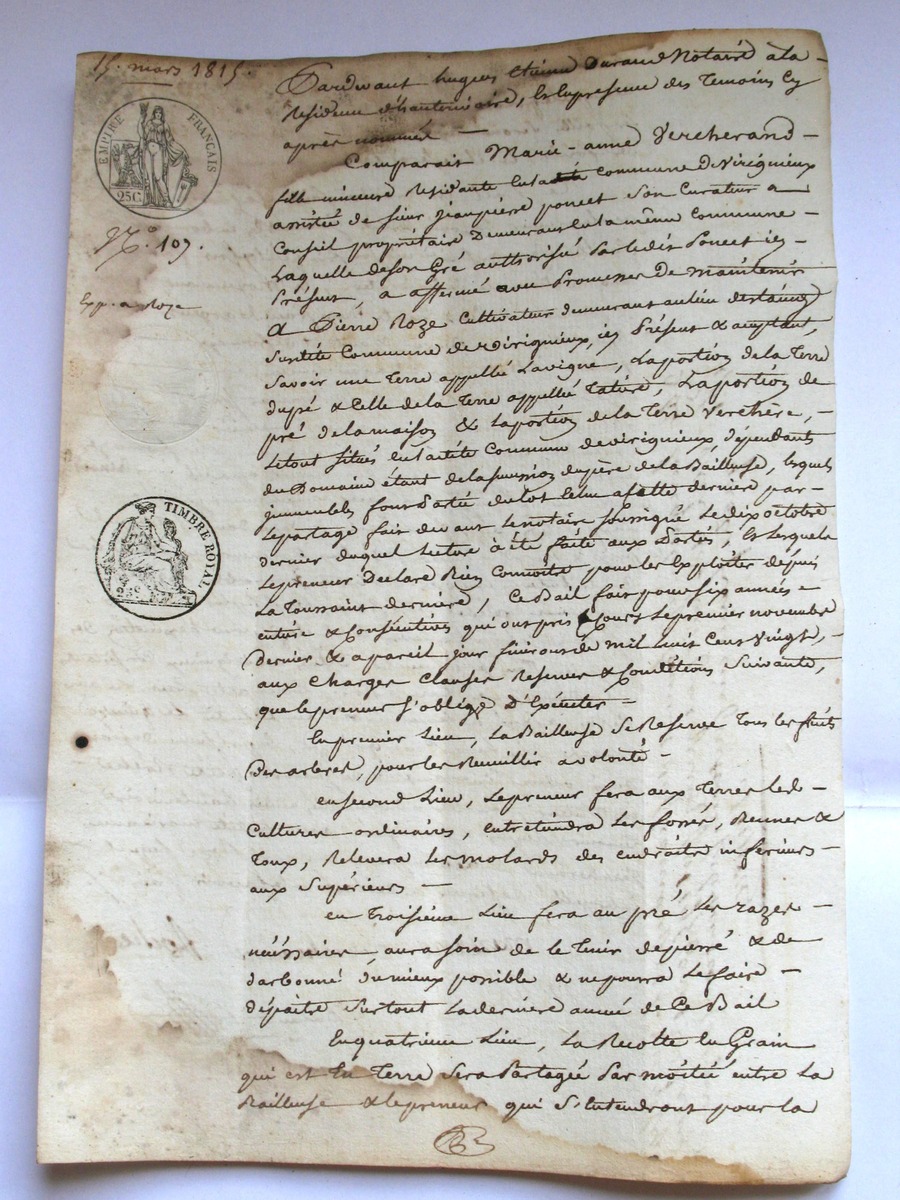 15. mars 1815.
EMPIRE FRANÇAIS
25C
N.° 109.
Exp. a Roze
TIMBRE ROYAL
Pardevant hugues Etienne Durand Notaire a la
Residence d'hauterivoire, Et En presence des Temoins Cy
après nommés —
Comparait Marie-anne Vercherand —
fille mineure Residante En la dite Commune De Virigneux
assistée de sieur jeanpierre poncet son Curateur a
Conseil propriétaire Demeurant En la même Commune —
Laquelle de son Gré authorisée Par le dit Poncet icy —
Présent, a affermé avec Promesses De maintenir
a Pierre Roze Cultivateur demeurant au lieu
sus dite Commune de Virigneux, icy Présent & acceptant,
Savoir une Terre appellée Lavigne, La portion de la Terre
du pré & Celle de la Terre appellée Tature, La portion de
pré de la maison & La portion de la Terre Verchère, —
Le tout situés en la dite Commune de virigneux, dépendants
du Domaine étant de la sucession du père de la Bailleuse, lesquels
immeubles font partie du lot Echu a cette dernière par —
Le partage fait devant Le notaire soussigné Le dix octobre
dernier duquel Lecture à été faite aux Parties, Et Lesquels
Le preneur Declare Bien Connoitre pour les Exploiter depuis
La Toussaint dernière, Ce Bail fait pour six années —
entière & Consécutives qui ont pris Cours Le premier novembre
Dernier & a pareil jour finiront de mil huit Cent vingt, —
aux Charges Clauses Reserves & Conditions Suivante,
que le preneur s'oblige D'Executer —
En premier Lieu, La Bailleuse se Reserve Tous les fruits
Des arbres, pour les Receuillir a volonté —
en second Lieu, Le preneur fera aux Terres Les —
Cultures ordinaires, entretiendra Les fossés, &
Toux, Relevera Les molards des endroits inferieurs —
aux Supérieurs —
en Troisième Lieu fera au pré Les razes —
nécéssaires, aura soin de le Tenir depierré & de
darbonné du mieux possible & ne pourra Le faire —
dépaitre Surtout La dernière année de Ce Bail
En quatrieme Lieu, La Recolte En Grain
qui est En Terre Sera Partagée Par moitié entre La
Bailleuse & le preneur qui S'entendront pour la